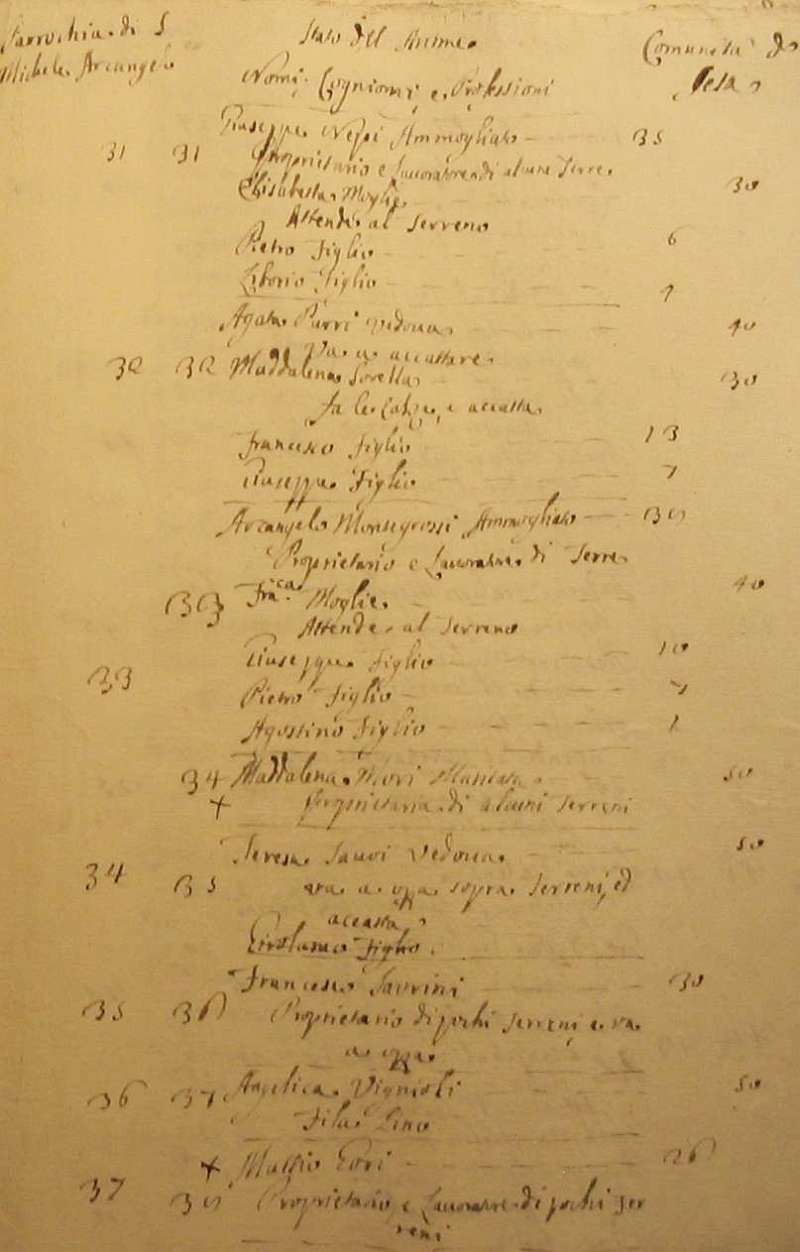 Parrochia di S
Michele Arcangelo
Stato dell Anime
Nomi, Cogniomi, e Professioni
Comunità di
Pesa
Giuseppe Nepi Ammogliato 35
31 31 Proprietario e Lauoratore di alcune Terre
Elisabetta Moglie 30
Attende al Terreno
Pietro Figlio 6
Liborio Figlio 1
Agata Parri Vedoua 40
Va a accattare
32 32 Maddalena Sorella 30
Fa le Calze, e accatta
Francesco Figlio 13
Giuseppe Figlio 7
Arcangelo Montegrossi Ammogliato
Proprietario e Lauoratore di Terre
33 Fra.ca Moglie 40
Attende al Terreno
Giuseppe Figlio 10
33
Pietro Figlio 7
Agostino Figlio 1
34 Maddalena Mori 50
+ Proprietaria di alcuni Terreni
Teresa Vedoua 50
34 35 va a oppa sopra Terreni, ed
accatta
Girolamo Figlio
Francesco 30
35 36 Proprietario di pochi Terreni e va
a oppa
36 37 Angelica Vignioli 50
Fila Lino
+ Mattio Gori 26
37 Proprietario, e Lauoratore di pochi Ter
reni